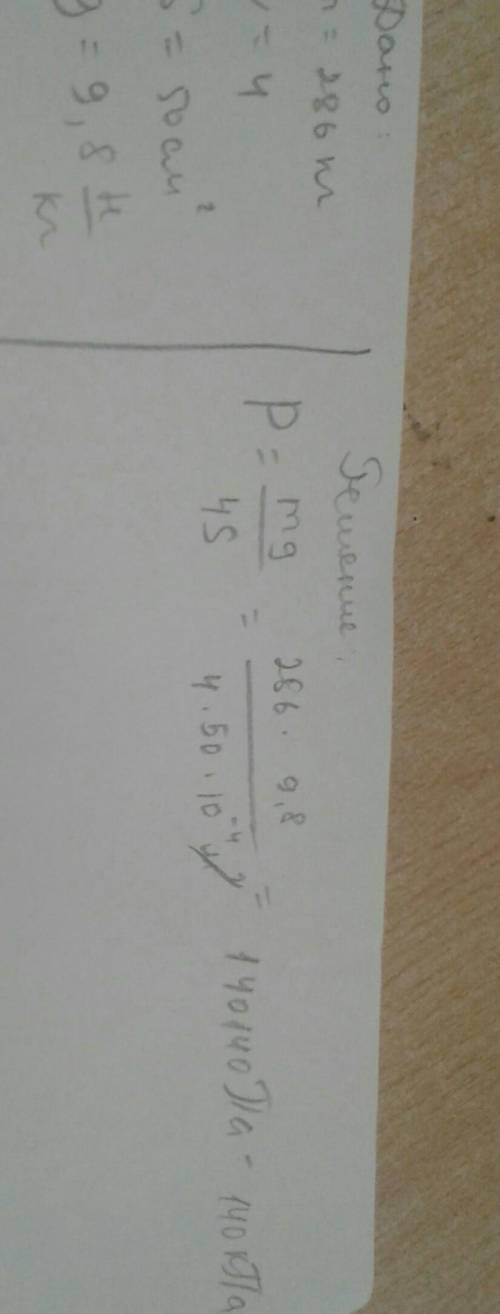 Дано:
m = 286 кг
= 4
S = 50 см²
g = 9,8 Н/кг
Решение:
P = mg/4S = 286 · 9,8 / 4 · 50 · 10⁻⁴ = 140140 Па - 140 кПа